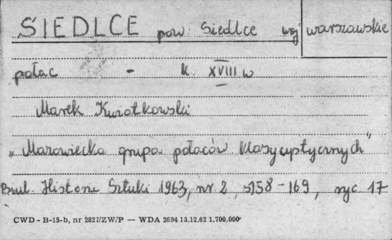 SIEDLCE pow. Siedlce woj warszawskie
pałac - k. XVIII w
Marek Kwiatkowski
„Mazowiecka grupa pałaców klasycystycznych"
Biul. Historii Sztuki 1963, nr 2, s158-169, ryc 17
CWD - B-15-b, nr 2827/ZW/P — WDA 2694 13.12.62 1.700.000